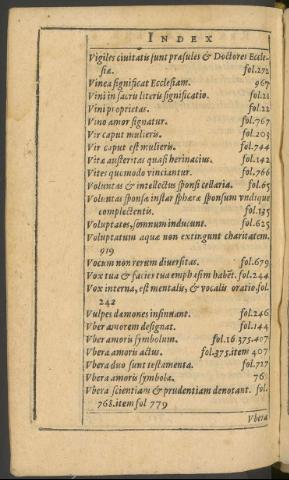 INDEX
Vigiles ciuitatis sunt præsules & Doctores Eccle-
siæ. fol.272
Vinea significat Ecclesiam. 967
Vini in sacris literis significatio. fol.21
Vini proprietas. fol.22
Vino amor signatur. fol.767
Vir caput mulieris. fol.203
Vir caput est mulieris. fol.744
Vitæ austeritas quasi herinacius. fol.142
Vites quomodo vinciantur. fol.766
Voluntas & intellectus sponsi cellaria. fol.65
Voluntas sponsæ instar sphæræ sponsum vndique
complectentis. fol.135
Voluptates, somnum inducunt. fol.625
Voluptatum aquæ non extingunt charitatem.
919
Vocum non rerum diuersitas. fol.679
Vox tua & facies tua emphasim habẽt. fol.244
Vox interna, est mentalis, & vocalis oratio. fol.
242
Vulpes dæmones insinuant. fol.246
Vber amorem designat. fol.144
Vber amoris symbolum. fol.16.375.407
Vbera amoris actus. fol.375.item 407
Vbera duo sunt testamenta. fol.727
Vbera amoris symbola.
Vbera scientiam & prudentiam denotant. fol.
768.item fol 779
Vbera